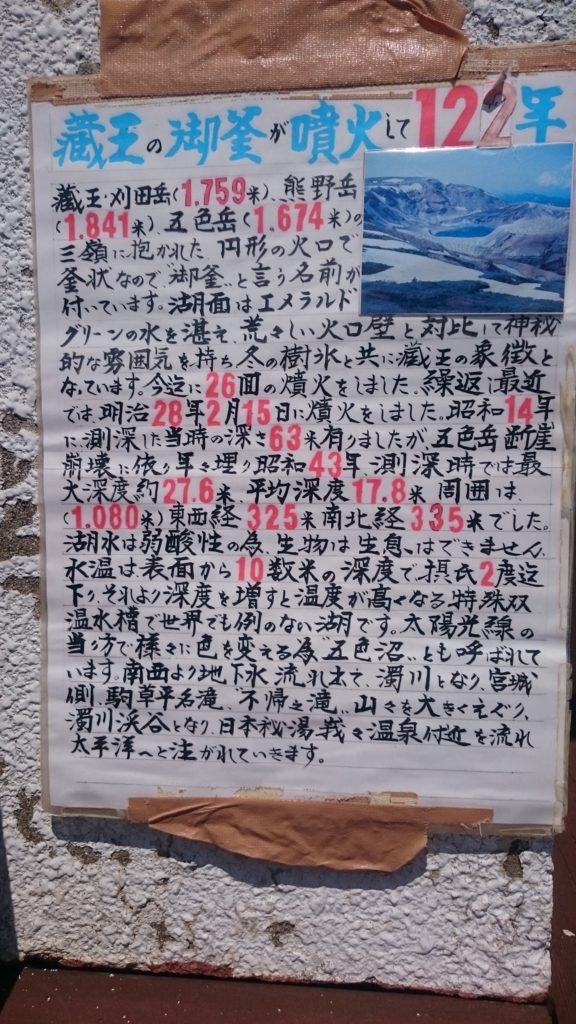 蔵王の御釜が噴火して122年
蔵王・刈田岳(1.759米)、熊野岳
(1.841米)、五色岳(1.674米)の
三嶺に抱かれた円形の火口で
釜状なので、御釜〟と言う名前が
付いています。湖面はエメラルド
グリーンの水を湛え、荒々しい火口壁と対比して神秘
的な雰囲気を持ち、冬の樹氷と共に蔵王の象徴と
なっています。今迄に26回の噴火をしました。繰返し最近
では、明治28年2月15日に噴火をしました。昭和14年
に測深した当時の深さ63米有りましたが、五色岳断崖
崩壊に依り年々埋り昭和43年、測深時では最
大深度約27.6米、平均深度17.8米、周囲は、
(1.080米)東西経325米南北経335米でした。
湖水は弱酸性の為、生物は生息はできません。
水温は表面から10数米の深度で、摂氏2度迄
下り、それより深度を増すと温度が高くなる特殊双
温水槽で世界でも例のない湖です。太陽光線の
当り方で様々に色を変える為〝五色沼〟とも呼ばれて
います。南西より地下水流れ出て、濁川となり、宮城
側、駒草平名滝、不帰之滝、山々を大きくえぐり、
濁川渓谷となり、日本秘湯峩々温泉付近を流れ
太平洋へと注がれていきます。